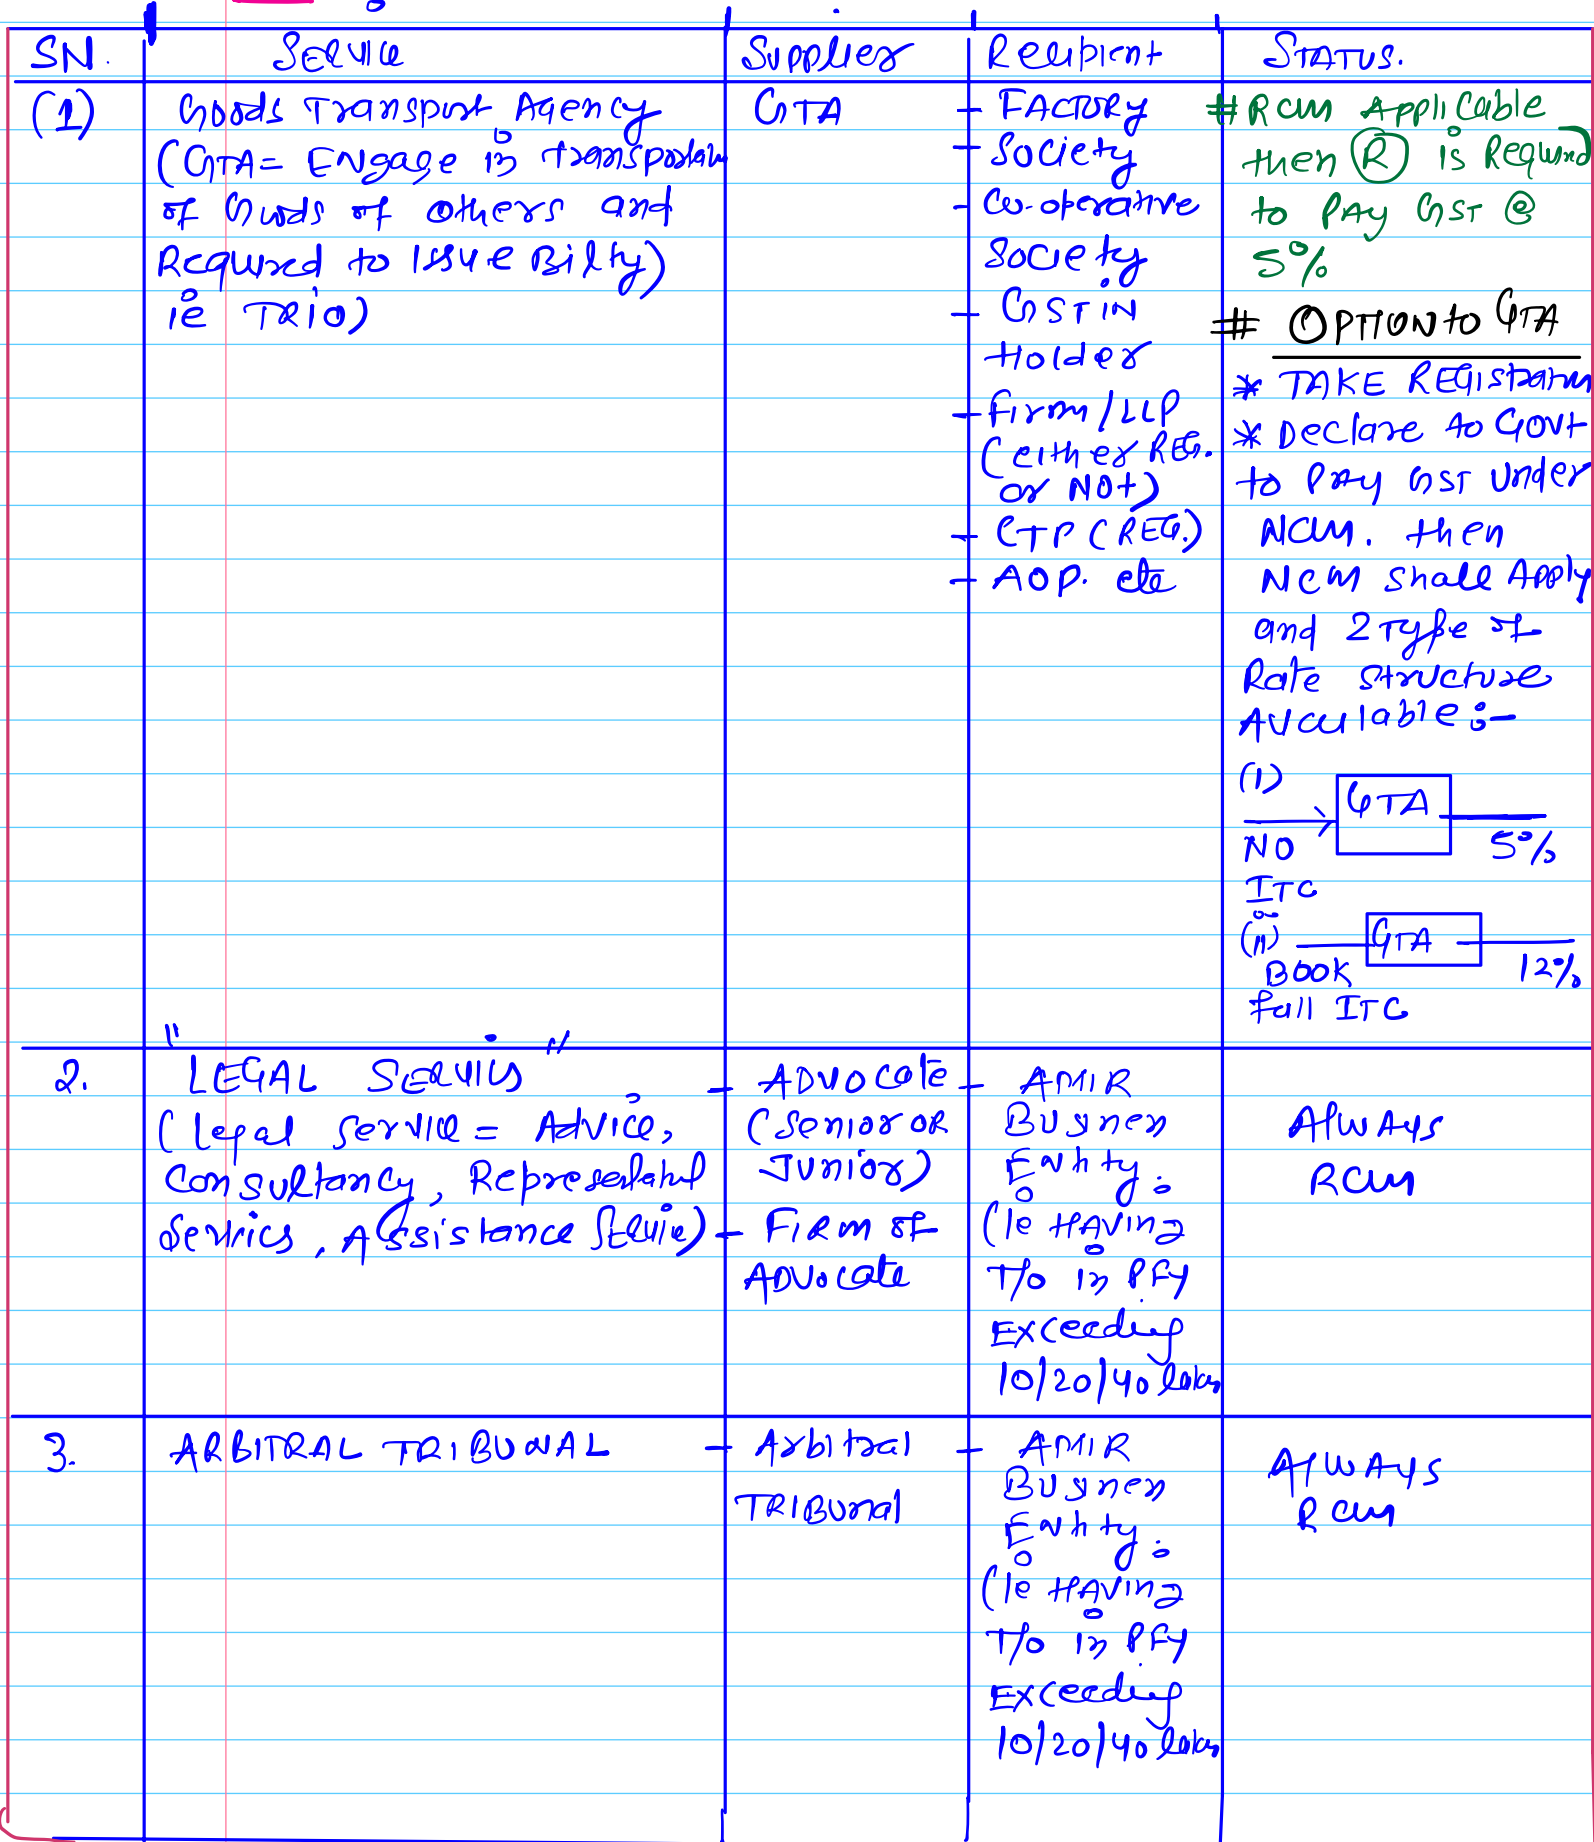 SN. Service Supplier Recipient STATUS.
(1) Goods Transport Agency
(GTA = Engage in transportation
of Goods of others and
Required to Issue Bilty)
ie TRIO)
GTA
- FACTORY
- Society
- Co-operative
Society
- GSTIN
Holder
- Firm/LLP
(either REG.
or NOT)
- CTP (REG.)
- AOP. etc
# RCM Applicable
then (R) is Required
to PAY GST @
5%
# OPTION to GTA
* TAKE REGIStration
* Declare to Govt
to PAY GST under
NCM. then
NCM Shall Apply
and 2 Type of
Rate Structure
Available :-
(i)
GTA
NO 5%
ITC
(ii) GTA
BOOK 12%
full ITC
2. "LEGAL SERVICES"
(legal service = Advice,
Consultancy, Representation
Services, Assistance Service)
- ADVOCATE
(Senior OR
Junior)
- FIRM OF
ADVOCATE
- AMIR
Business
Entity :
(ie HAVING
T/o in PFY
Exceeding
10/20/40 lakhs
Always
RCM
3. ARBITRAL TRIBUNAL
- Arbitral
TRIBUnal
- AMIR
Business
Entity :
(ie HAVING
T/o in PFY
Exceeding
10/20/40 lakhs
Always
RCM